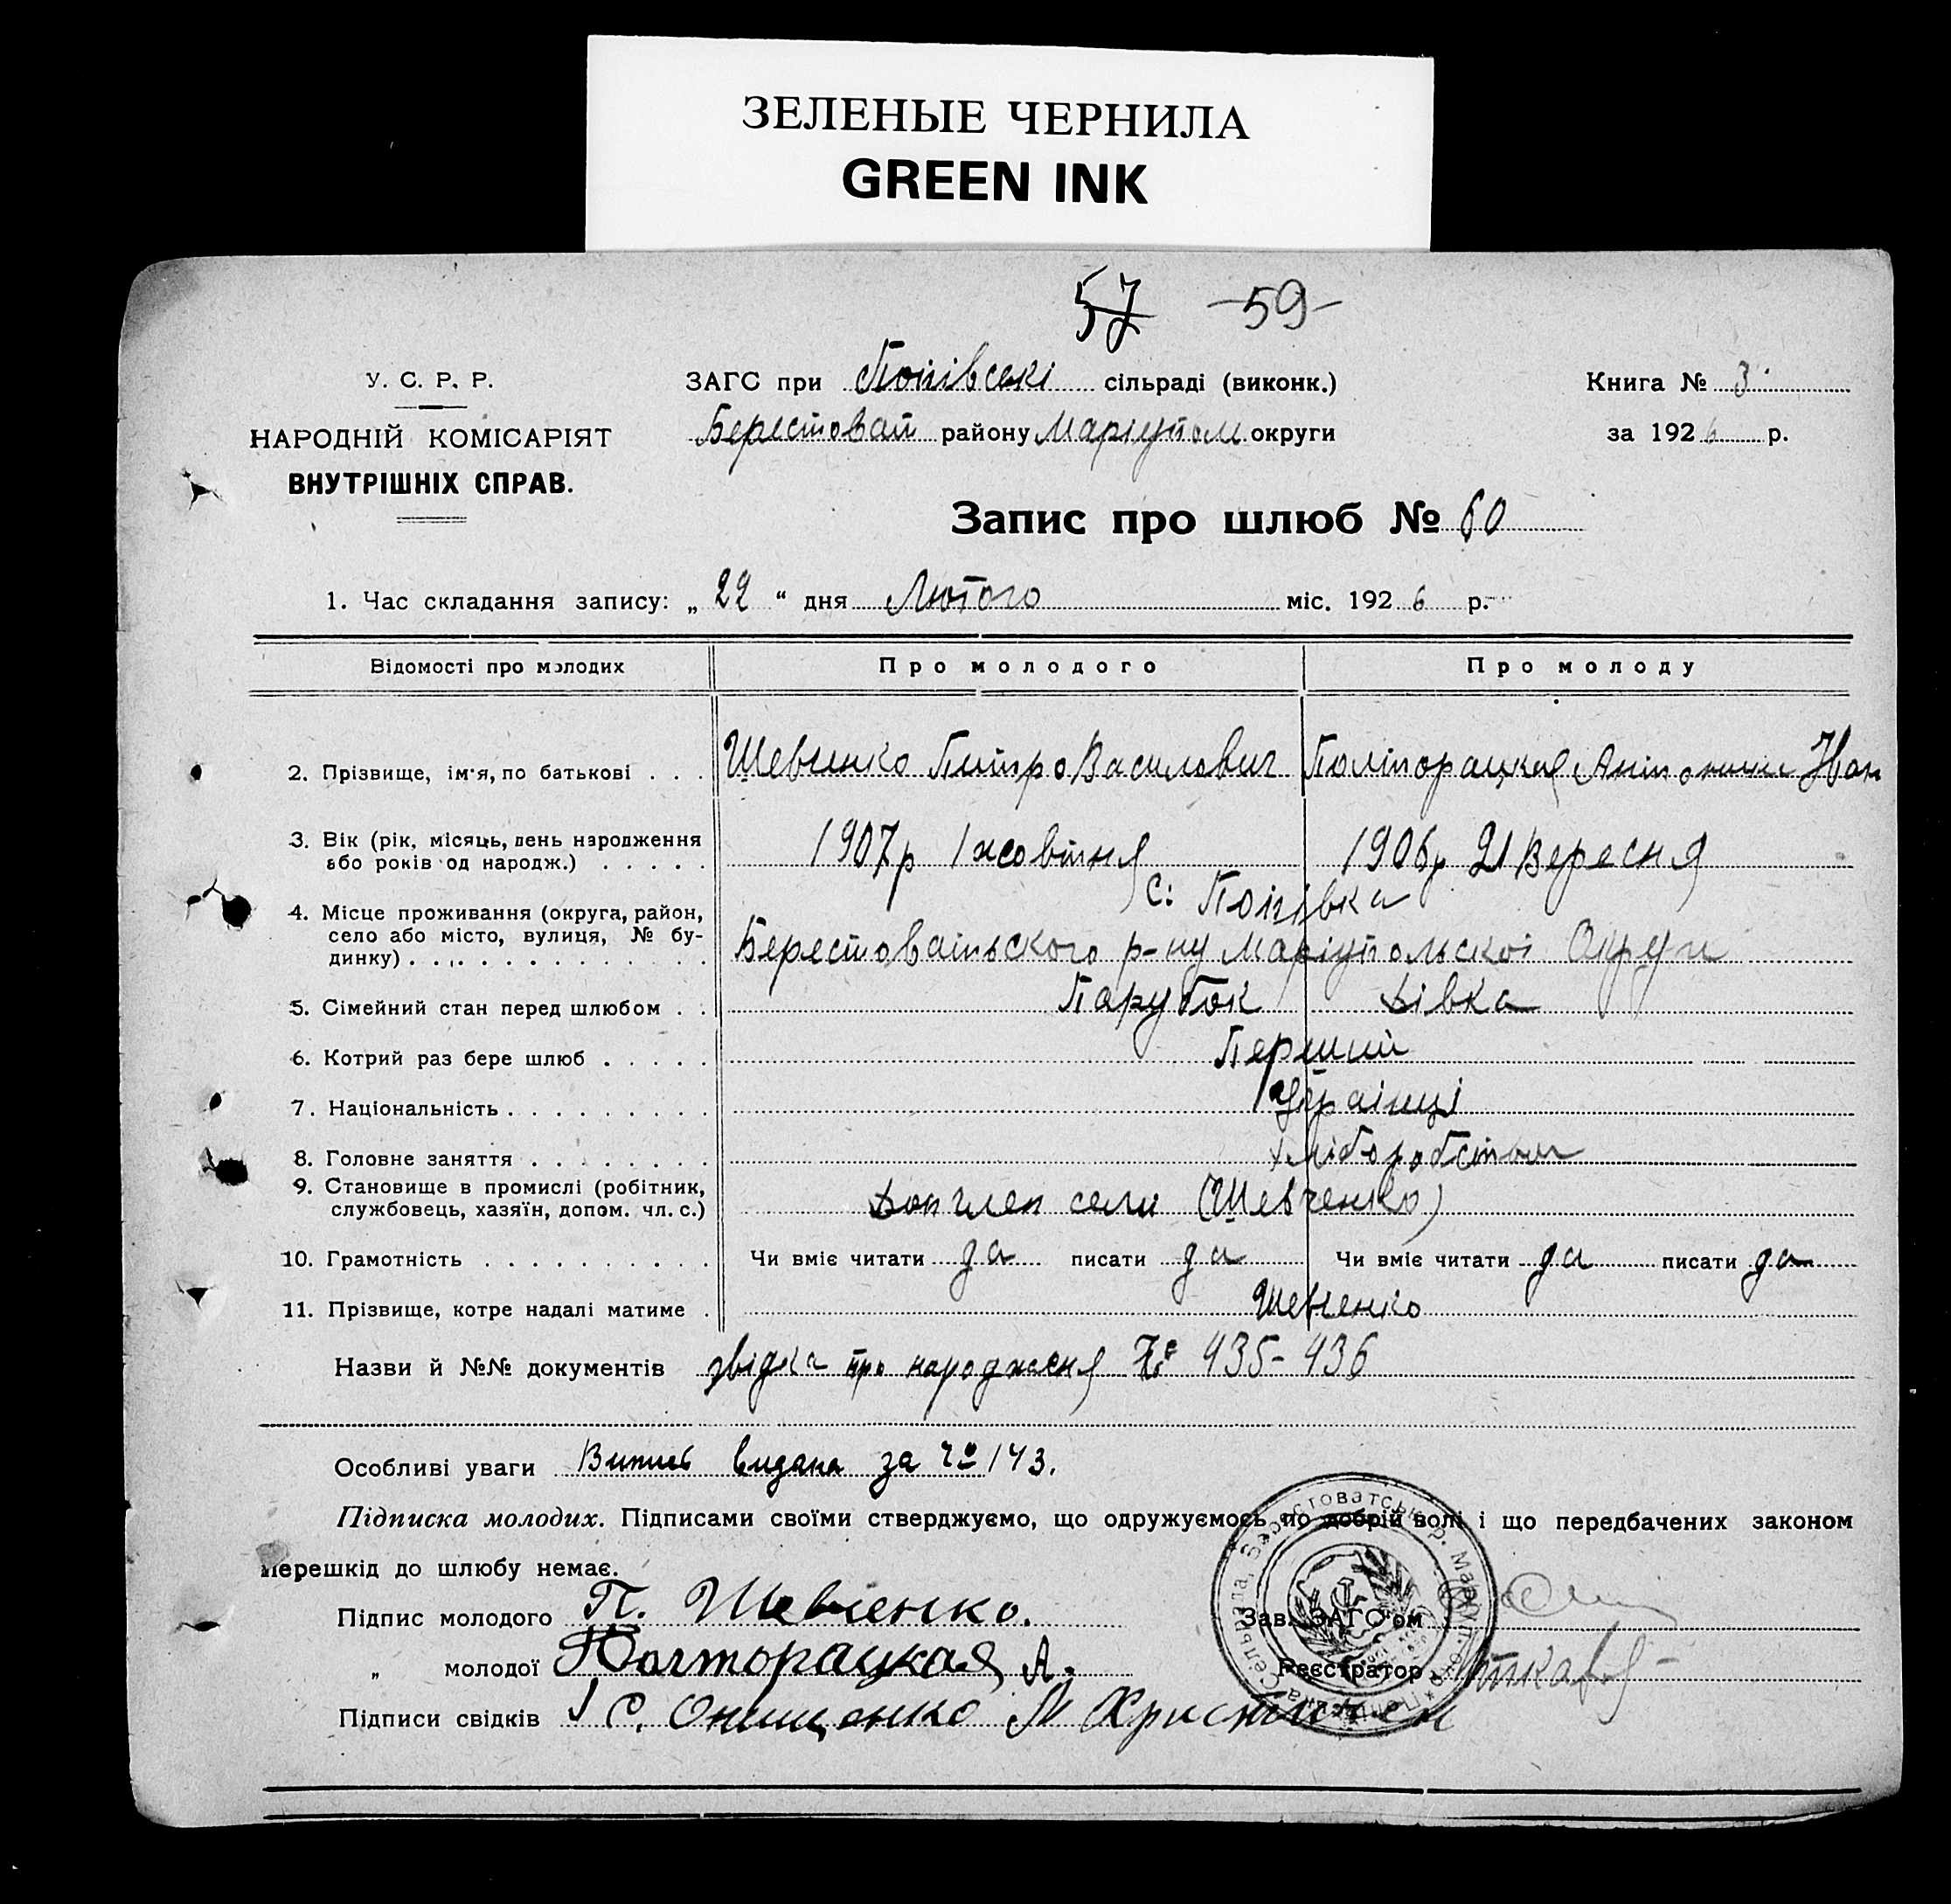 ЗЕЛЕНЫЕ ЧЕРНИЛА
GREEN INK
57 -59-
У. С. Р. Р.
НАРОДНІЙ КОМІСАРІЯТ
ВНУТРІШНІХ СПРАВ.
ЗАГС при Попівські сільраді (виконк.)
Берестоват району Маріупол округи
Книга № 3
за 1926 р.
Запис про шлюб № 60
1. Час складання запису: „ 22 “ дня Лютого міс. 1926 р.
Відомості про молодих Про молодого Про молоду
2. Прізвище, ім'я, по батькові . . . Шевченко Питро Василович Полторацкая Антонина Іван
3. Вік (рік, місяць, день народження
або років од народж.) . . . . . 1907р 1 жовтня 1906р 21 Вересня
4. Місце проживання (округа, район, с: Попівка
село або місто, вулиця, № бу-
динку) . . . . . . . . . . . . . Берестоватьского р-ну Маріупольскоі Округи
5. Сімейний стан перед шлюбом . . Парубок Дівка
6. Котрий раз бере шлюб . . . . . Перший
7. Національність . . . . . . . . . Українці
8. Головне заняття . . . . . . . . Хліборобством
9. Становище в промислі (робітник,
службовець, хазяїн, допом. чл. с.) Доп член семи (Шевченко)
10. Грамотність . . . . . . . . . . Чи вміє читати да писати да Чи вміє читати да писати да
11. Прізвище, котре надалі матиме . Шевченко
Назви й №№ документів звідка про народження № 435-436
Особливі уваги Витис видана за № 143.
Підписка молодих. Підписами своїми стверджуємо, що одружуємось по добрій волі і що передбачених законом
перешкід до шлюбу немає.
Підпис молодого П. Шевченко. Зав. ЗАГС'ом
„ молодої Полторацкая А. Реєстратор
Підписи свідків С. Онищенко М